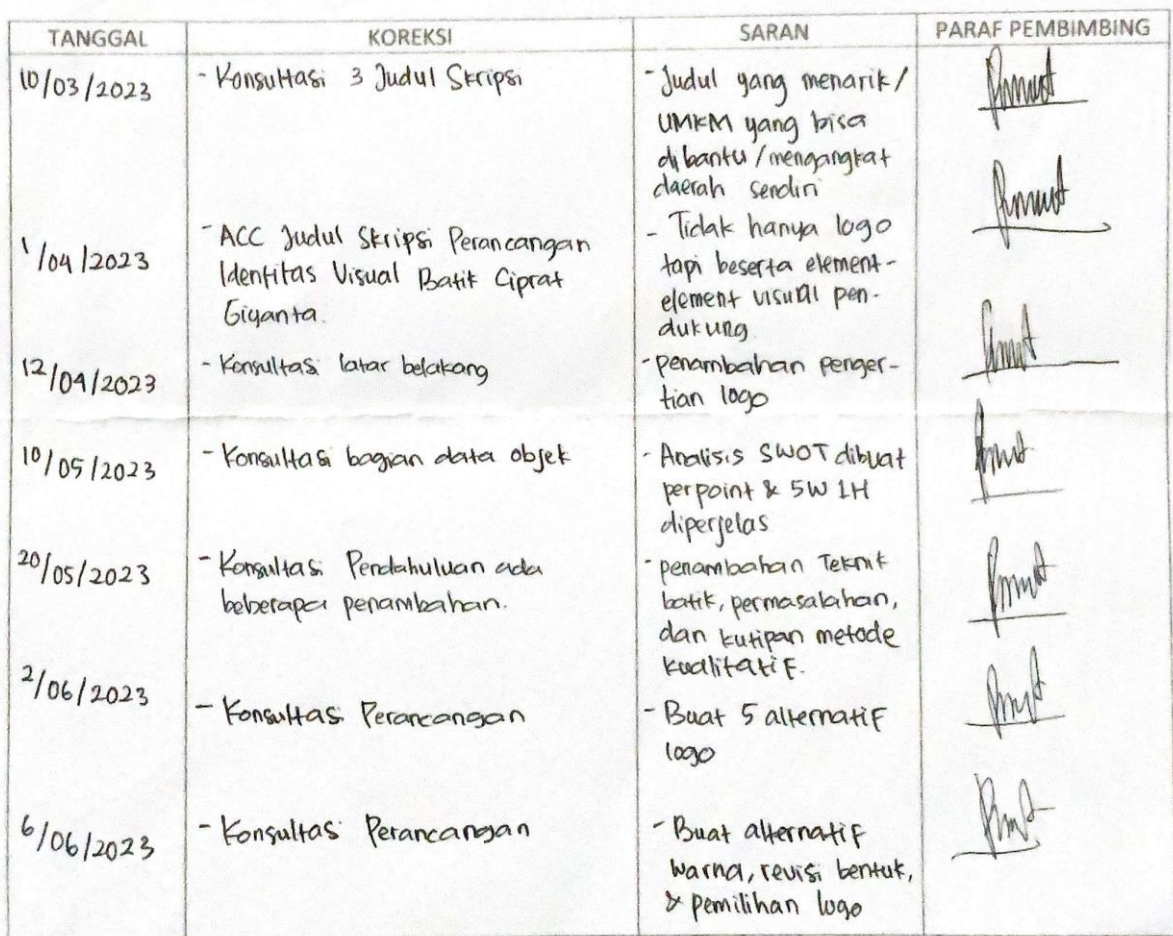 TANGGAL KOREKSI SARAN PARAF PEMBIMBING
10/03/2023 - Konsultasi 3 Judul Skripsi - Judul yang menarik/
UMKM yang bisa
dibantu/mengangkat
daerah sendiri
1/04/2023 - ACC Judul Skripsi Perancangan - Tidak hanya logo
Identitas Visual Batik Ciprat tapi beserta element-
Giyanta. element visual pen-
dukung.
12/04/2023 - Konsultasi latar belakang - penambahan penger-
tian logo
10/05/2023 - Konsultasi bagian data objek - Analisis SWOT dibuat
perpoint & 5W 1H
diperjelas
20/05/2023 - Konsultasi Pendahuluan ada - penambahan Teknik
beberapa penambahan. batik, permasalahan,
dan kutipan metode
kualitatif.
2/06/2023 - Konsultasi Perancangan - Buat 5 alternatif
logo
6/06/2023 - Konsultasi Perancangan - Buat alternatif
warna, revisi bentuk,
& pemilihan logo